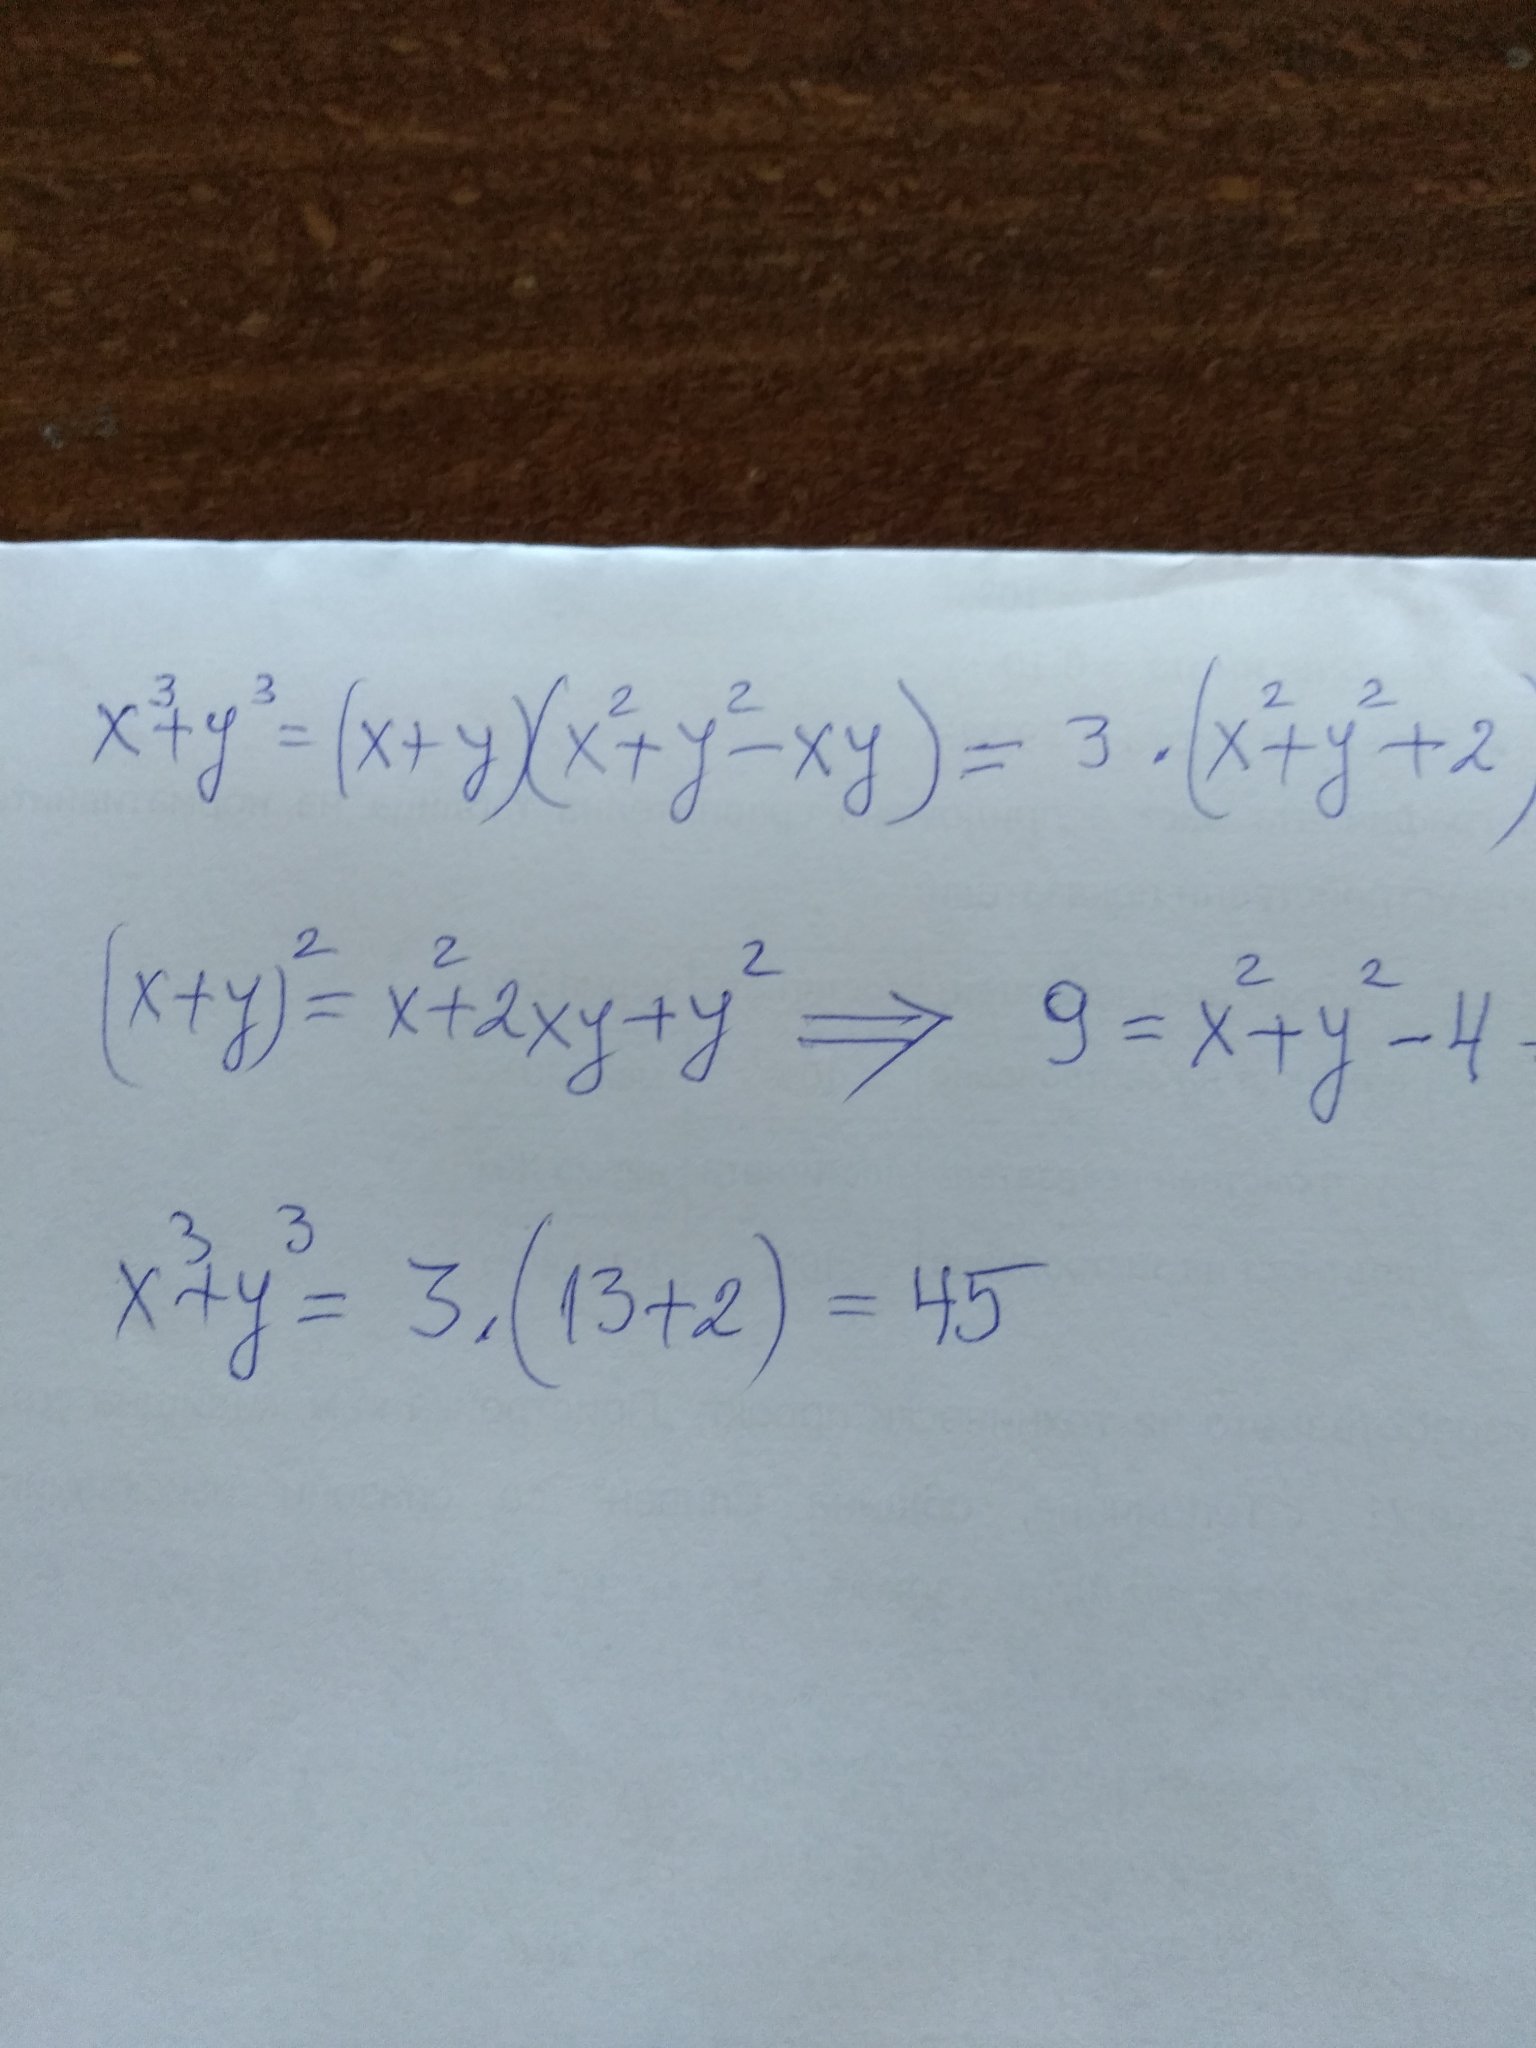 x³+y³=(x+y)(x²+y²-xy)=3·(x²+y²+2)
(x+y)²=x²+2xy+y² ⟹ 9=x²+y²-4
x³+y³=3·(13+2)=45